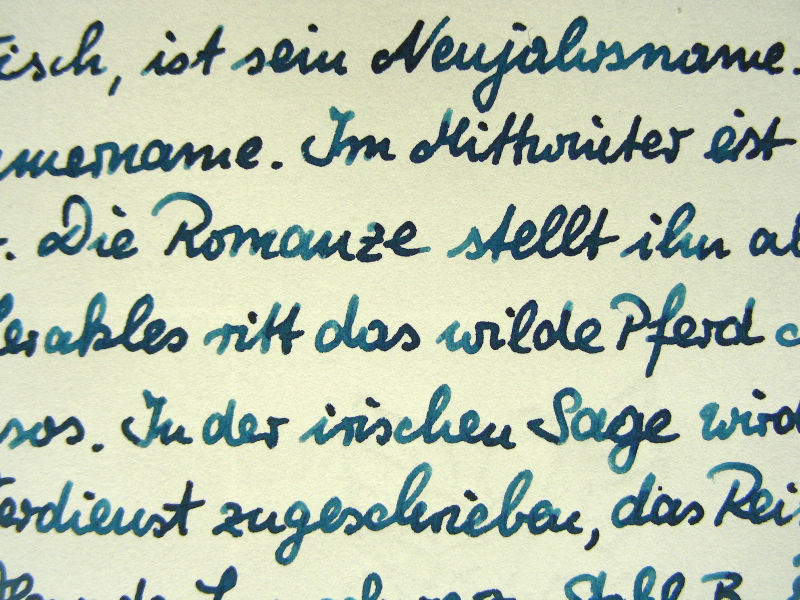 isch, ist sein Neujahrsname.
mername. Im Mittwinter eist
. Die Romanze stellt ihn ab
erakles ritt das wilde Pferd
sos. In der irischen Sage wird
erdienst zugeschrieben, das Rei